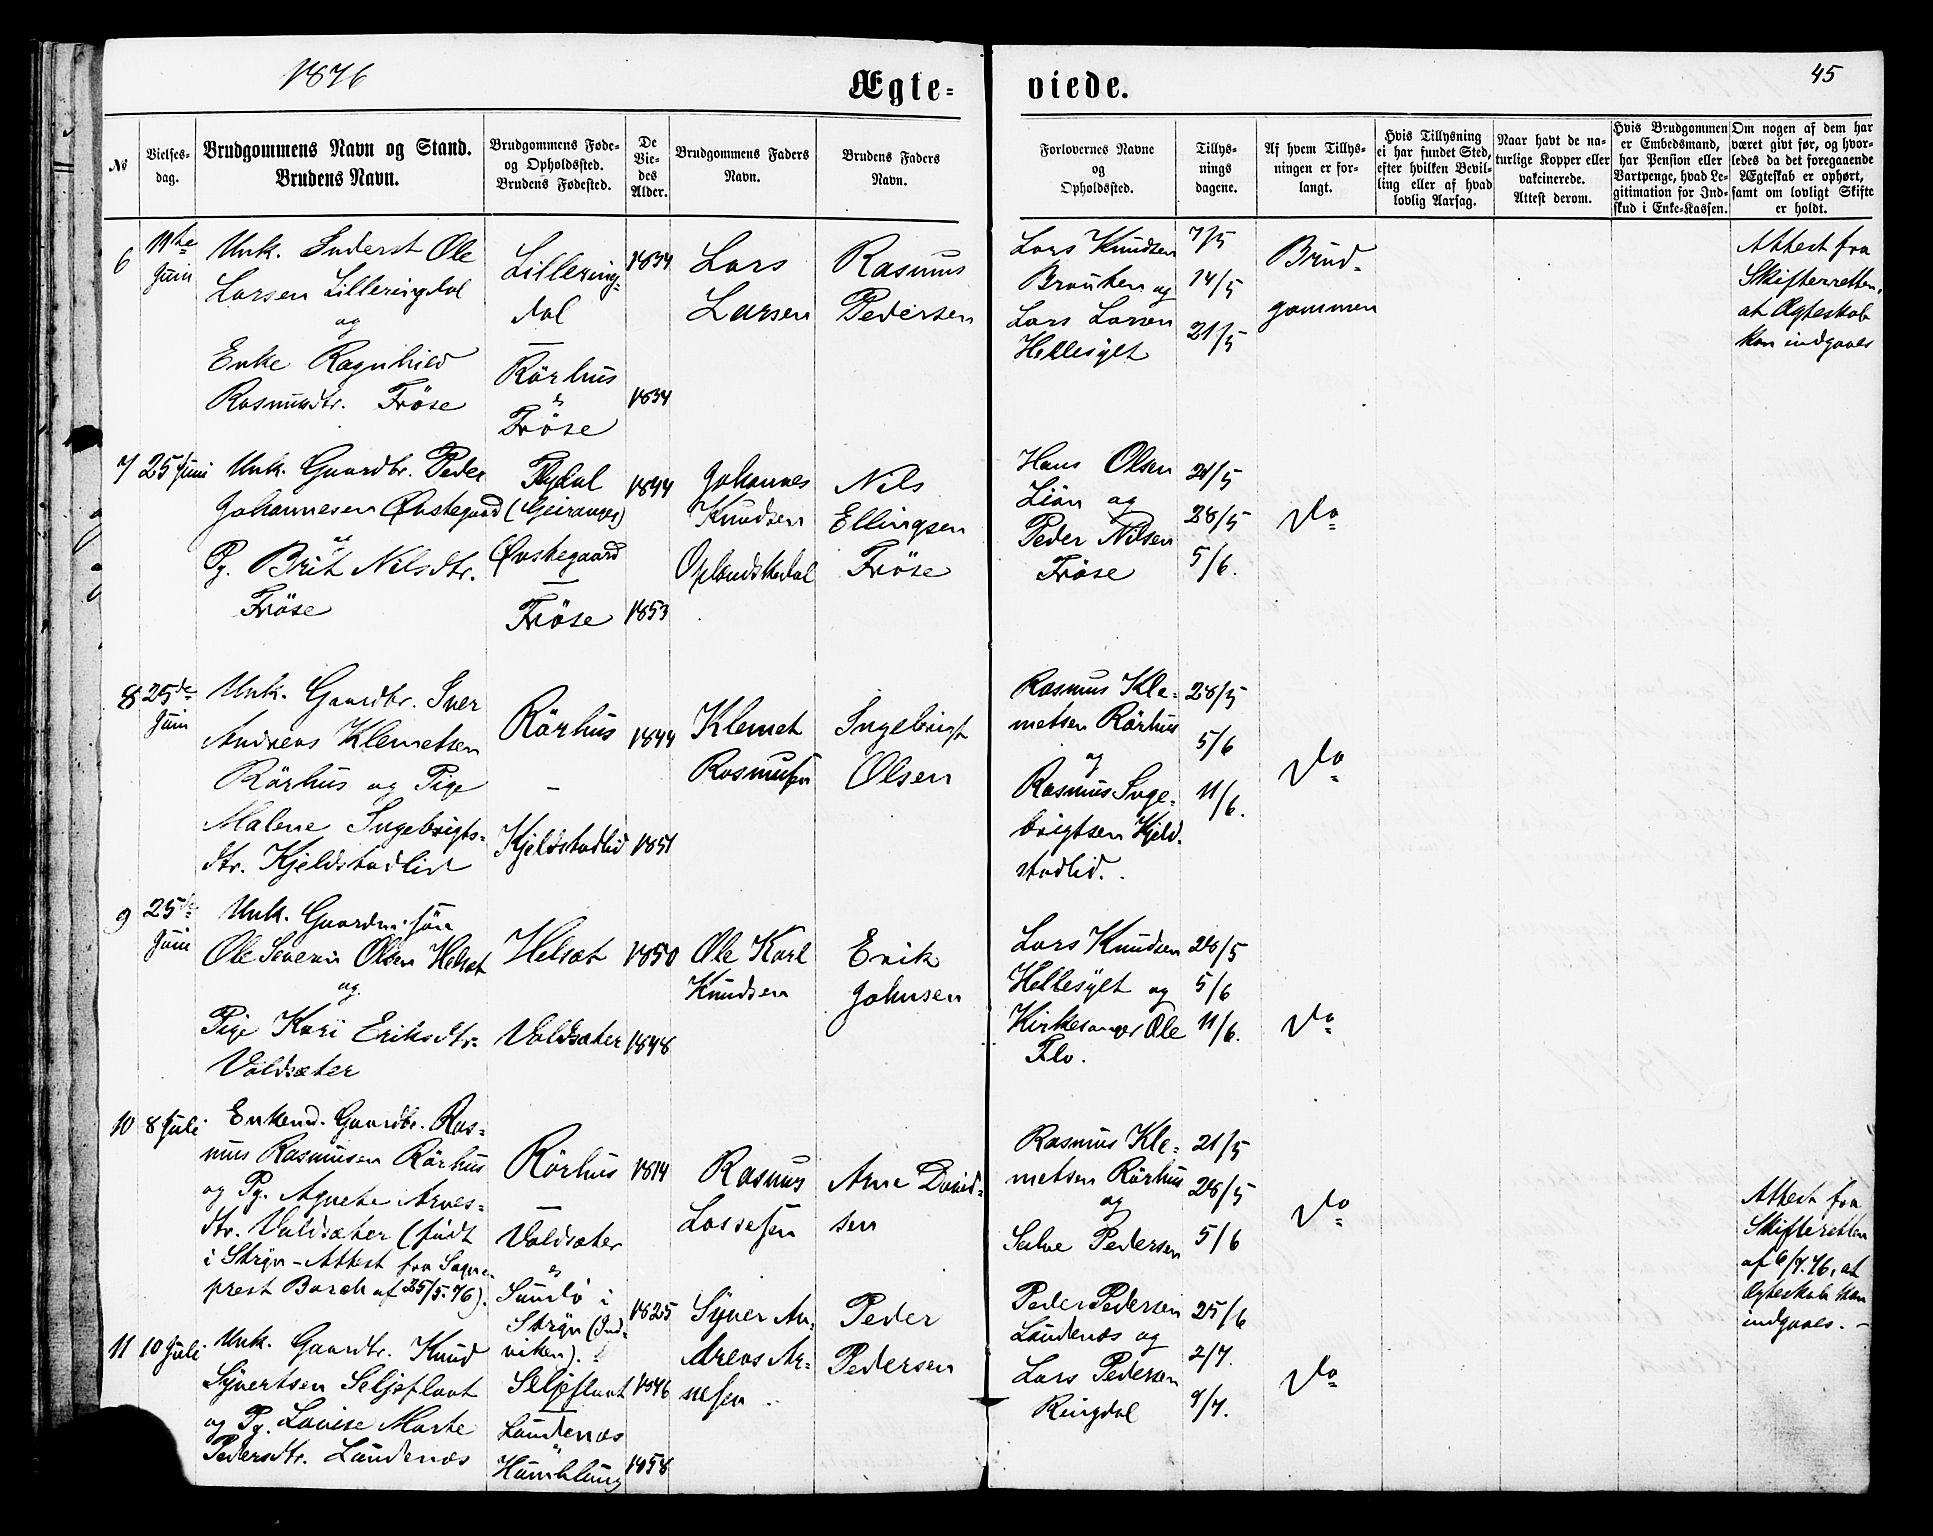 1876
Ægte-
viede.
45
No
Vielses-
dag.
Brudgommens Navn og Stand.
Brudens Navn.
Brudgommens Føde-
og Opholdssted.
Brudens Fødested.
De
Vie-
des
Alder.
Brudgommens Faders
Navn.
Brudens Faders
Navn.
Forlovernes Navne
og
Opholdssted.
Tillys-
nings
dagene.
Af hvem Tillys-
ningen er for-
langt.
Hvis Tillysning
ei har fundet Sted,
efter hvilken Bevil-
ling eller af hvad
lovlig Aarsag.
Naar havt de na-
turlige Kopper eller
vakcinerede.
Attest derom.
Hvis Brudgommen
er Embedsmand,
har Pension eller
Vartpenge, hvad Le-
gitimation for Ind-
skud i Enke-Kassen.
Om nogen af dem har
været givt før, og hvor-
ledes da det foregaaende
Ægteskab er ophørt,
samt om lovligt Skifte
er holdt.
6
11te
Juni
Unk. Inderst Ole
Larsen Lilleringdal
og
Enke Ragnhild
Rasmusdtr. Fröse
Lillering-
dal
Rörhus
Fröse
1834
1834
Lars
Larsen
Rasmus
Pedersen
Lars Knudsen
og
Lars Larsen
Hellesylt
7/5
14/5
21/5
Brud-
gommen
Attest fra
Skifteretten,
at Ægteskab
kan indgaaes
7
25 Juni
Unk. Gaardbr. Peder
Johannesen Øvstegaard
og
Pg. Brit Nilsdtr.
Fröse
(Geiranger)
Øvstegaard
Fröse
1844
1853
Johannes
Knudsen
Oplandskedal
Nils
Ellingsen
Fröse
Hans Olsen
Lian og
Peder Nilsen
Fröse
21/5
28/5
5/6.
Do
8
25de
Juni
Unk. Gaardbr. Iver
Andreas Klemetsen
Rörhus og Pige
Malene Ingebrigts-
dtr. Kjeldstadlid
Rörhus
Kjeldstadlid
1844
1851
Klemet
Rasmusen
Ingebrigt
Olsen
Rasmus Kle-
metsen Rörhus
og
Rasmus Inge-
brigtsen Kjeld-
stadlid.
28/5
5/6
11/6.
Do
9
25de
Juni
Unk.
Ole Severin Olsen Helsæt
og
Pige Kari Eriksdtr.
Voldsæter
Helsæt
Voldsæter
1850
1848
Ole Karl
Knudsen
Erik
Johnsen
Lars Knudsen
Hellesylt og
Kirkesanger Ole
Flo.
28/5
5/6
11/6.
Do
10
8 Juli
Enkemd. Gaardbr. Ras-
mus Rasmusen Rörhus
og Pg. Agnete Arnes-
dtr. Voldsæter (födt
i Stryn - Attest fra Sogne-
prest Barch af 25/5.76).
Rörhus
Voldsæter
Sundö i
Stryn (Ind-
viken).
1814
1825
Rasmus
Lassesen
Arne David-
sen
Rasmus Kle-
metsen Rörhus
og
Salve Pedersen
21/5
28/5
5/6
Do
Attest fra
Skifteretten
af 6/7.76, at
Ægteskab kan
indgaaes. -
11
10 Juli
Unk. Gaardbr. Knud
Syvertsen Seljeflaat
og Pg. Lovise Marte
Pedersdtr. Landenæs
Seljeflaat
Landenæs
1846
1858
Syver An-
dreas Ar-
nesen
Peder
Pedersen
Peder Pedersen
Landenæs og
Lars Pedersen
Ringdal
25/6
2/7.
9/7.
Do